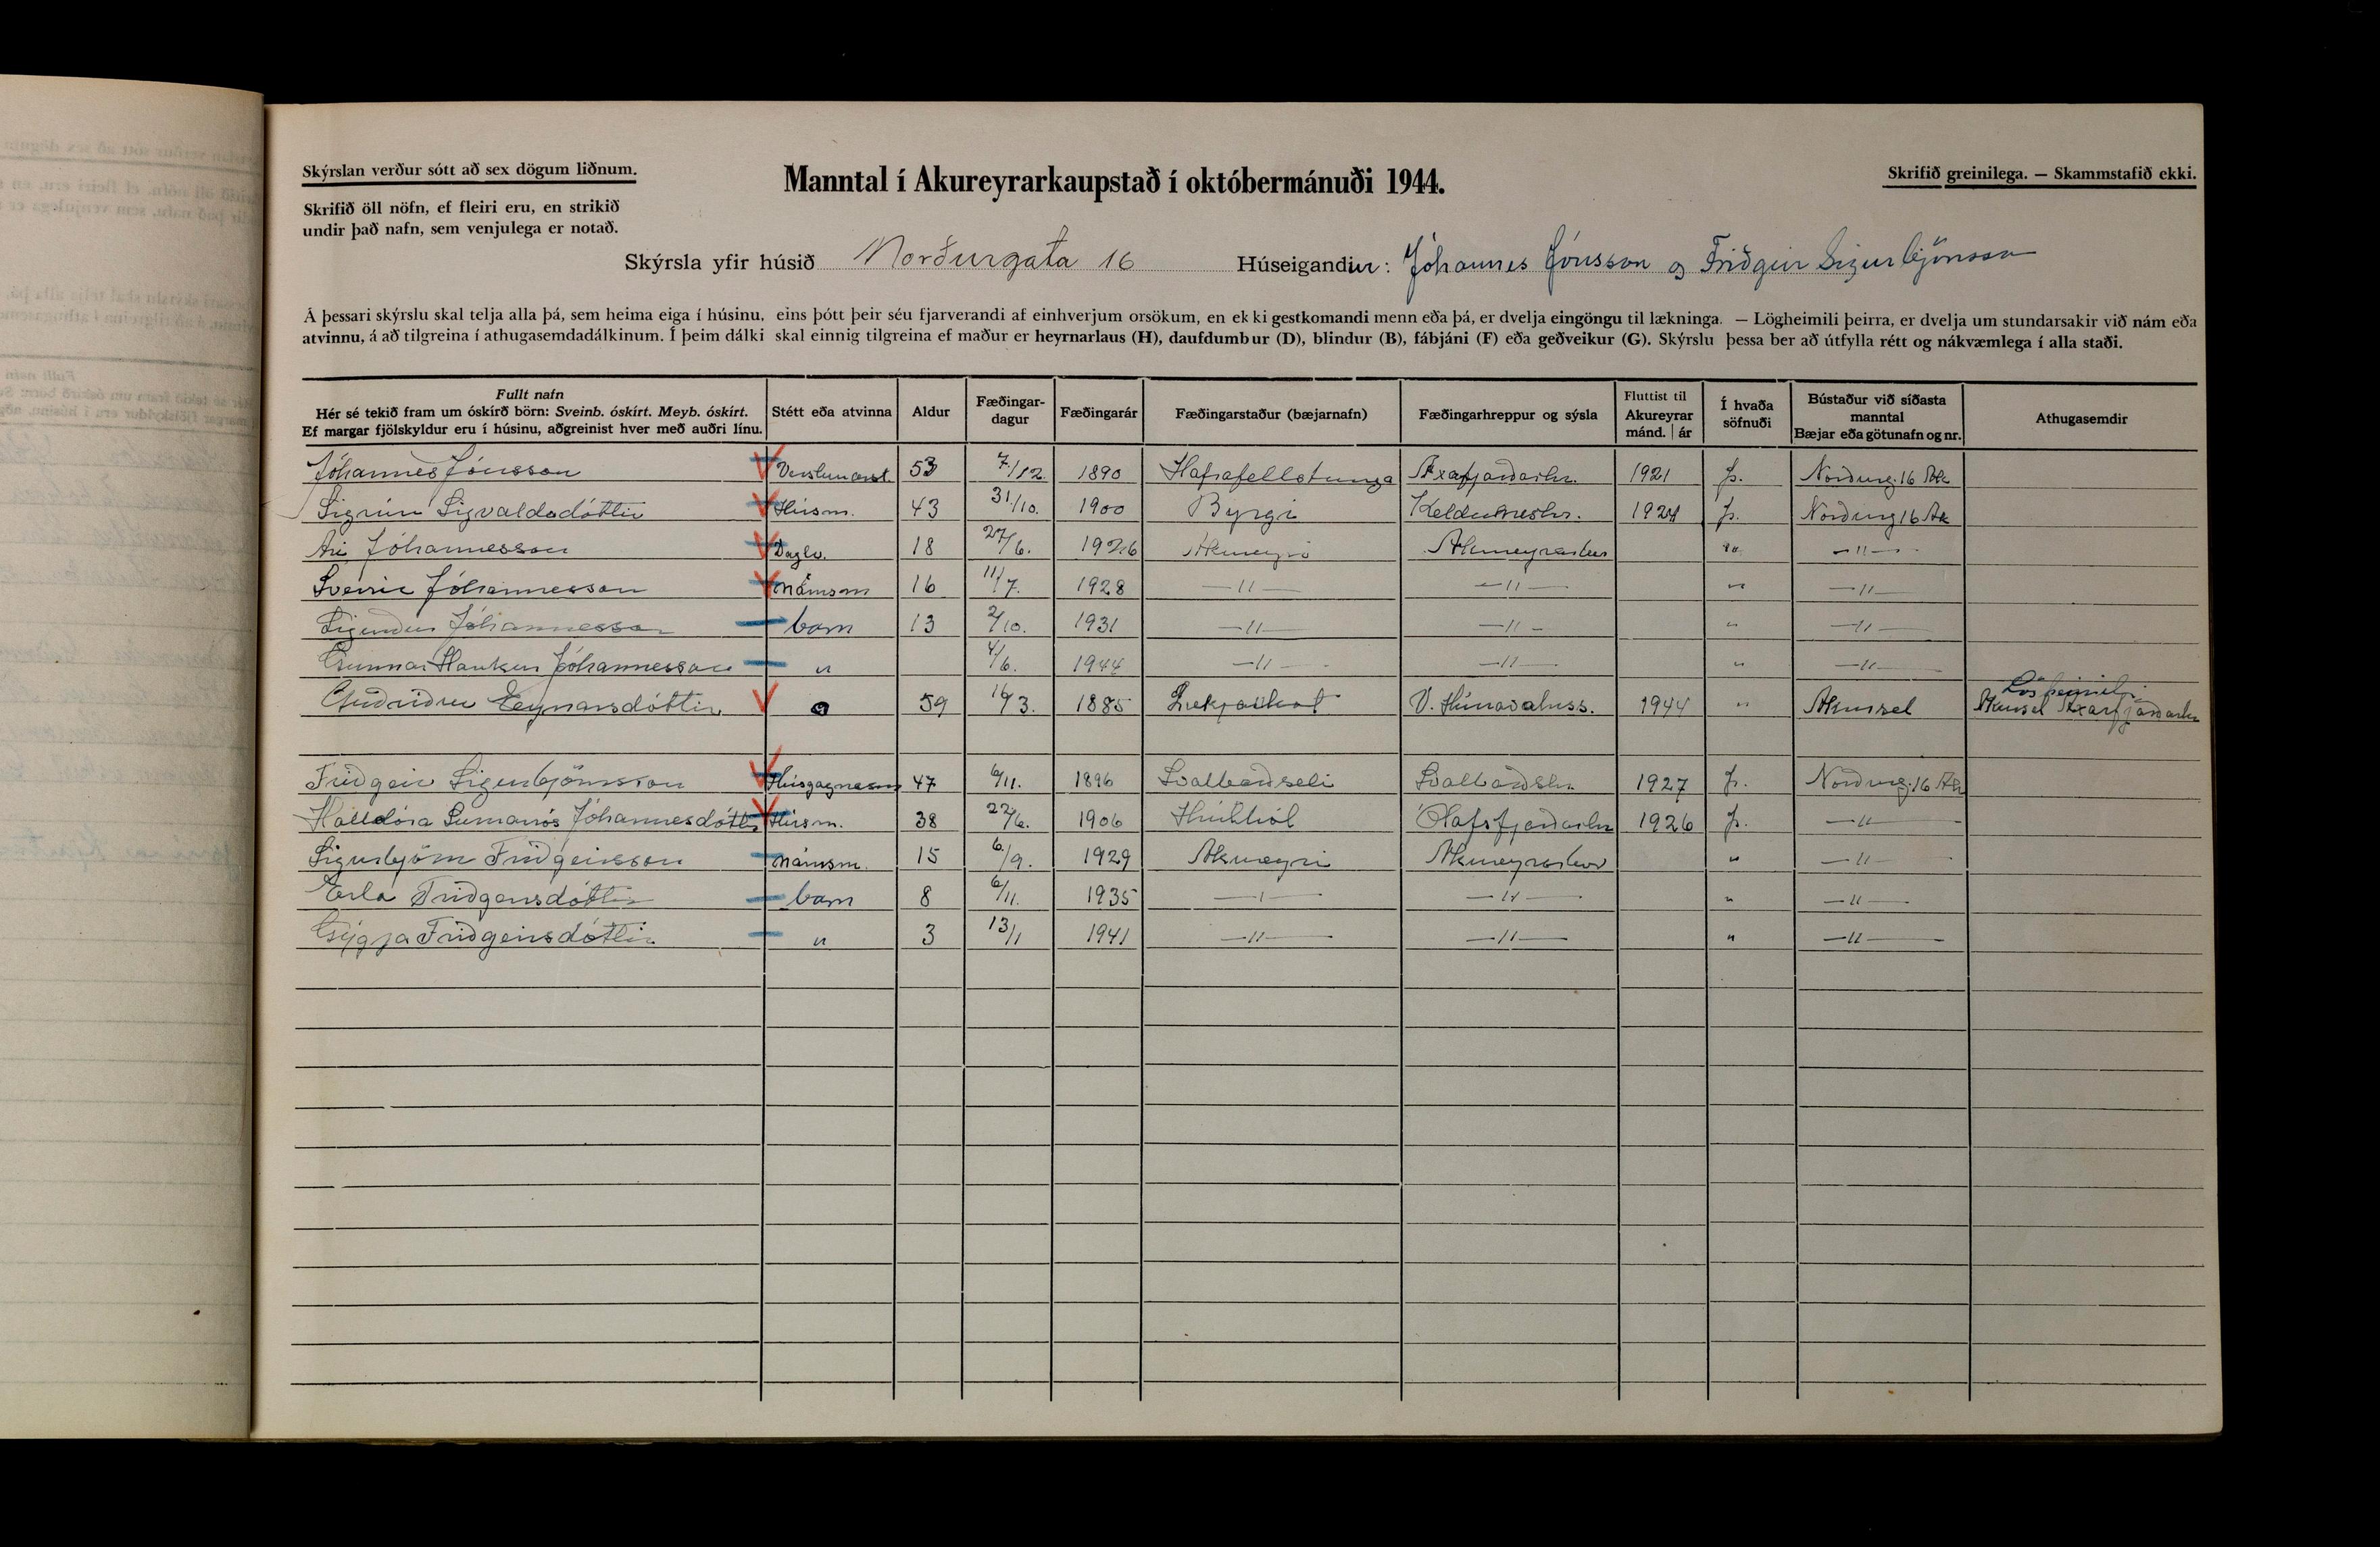 Skýrslan verður sótt að sex dögum liðnum.
Manntal í Akureyrarkaupstað í októbermánuði 1944.
Skrifið greinilega. — Skammstafið ekki.
Skrifið öll nöfn, ef fleiri eru, en strikið
undir það nafn, sem venjulega er notað.
Skýrsla yfir húsið Norðurgata 16 Húseigandur: Jóhannes Jónsson og Friðgeir Sigurbjörnsson
Á þessari skýrslu skal telja alla þá, sem heima eiga í húsinu, eins þótt þeir séu fjarverandi af einhverjum orsökum, en ekki gestkomandi menn eða þá, er dvelja eingöngu til lækninga. — Lögheimili þeirra, er dvelja um stundarsakir við nám eða
atvinnu, á að tilgreina í athugasemdadálkinum. Í þeim dálki skal einnig tilgreina ef maður er heyrnarlaus (H), daufdumbur (D), blindur (B), fábjáni (F) eða geðveikur (G). Skýrslu þessa ber að útfylla rétt og nákvæmlega í alla staði.
Fullt nafn
Hér sé tekið fram um óskírð börn: Sveinb. óskírt. Meyb. óskírt.
Ef margar fjölskyldur eru í húsinu, aðgreinist hver með auðri línu.
Stétt eða atvinna
Aldur
Fæðingar-
dagur
Fæðingarár
Fæðingarstaður (bæjarnafn)
Fæðingarhreppur og sýsla
Fluttist til
Akureyrar
mánd. | ár
Í hvaða
söfnuði
Bústaður við síðasta
manntal
Bæjar eða götunafn og nr.
Athugasemdir
Jóhannes Jónsson 53 7/12. 1890 Hafrafellstunga Axafjarðarhr. 1921 þ. Norðurg. 16 Ak
Sigrún Sigvaldadóttir Húsm. 43 31/10. 1900 Byrgi Kelduneshr. 1924 þ. Norðurg 16 Ak
Ari Jóhannesson Daglv. 18 27/6. 1926 Akureyri " —"—
Sverrir Jóhannesson Námsm 16 11/7. 1928 —"— —"— " —"—
Sigurður Jóhannesson barn 13 2/10. 1931 —"— —"— " —"—
Gunnar Haukur Jóhannesson " 4/6. 1944 —"— —"— " —"—
Guðríður Eynarsdóttir 59 14/3. 1885 V. Húnavatnss. 1944 " Akursel Lögheimili
Akursel Axarfjarðarhr
Friðgeir Sigurbjörnsson Húsgagnasm 47 6/11. 1896 Svalbarðseli Svalbarðshr. 1927 þ. Norðurg. 16 Ak
Halldóra Sumarrós Jóhannesdóttir Húsm. 38 22/6. 1906 Ólafsfjarðarhr 1926 þ. —"—
Sigurbjörn Friðgeirsson Námsm. 15 6./9. 1929 Akureyri " —"—
Erla Friðgeirsdóttir barn 8 6/11. 1935 —"— —"— " —"—
Gýgja Friðgeirsdóttir " 3 13/1 1941 —"— —"— " —"—